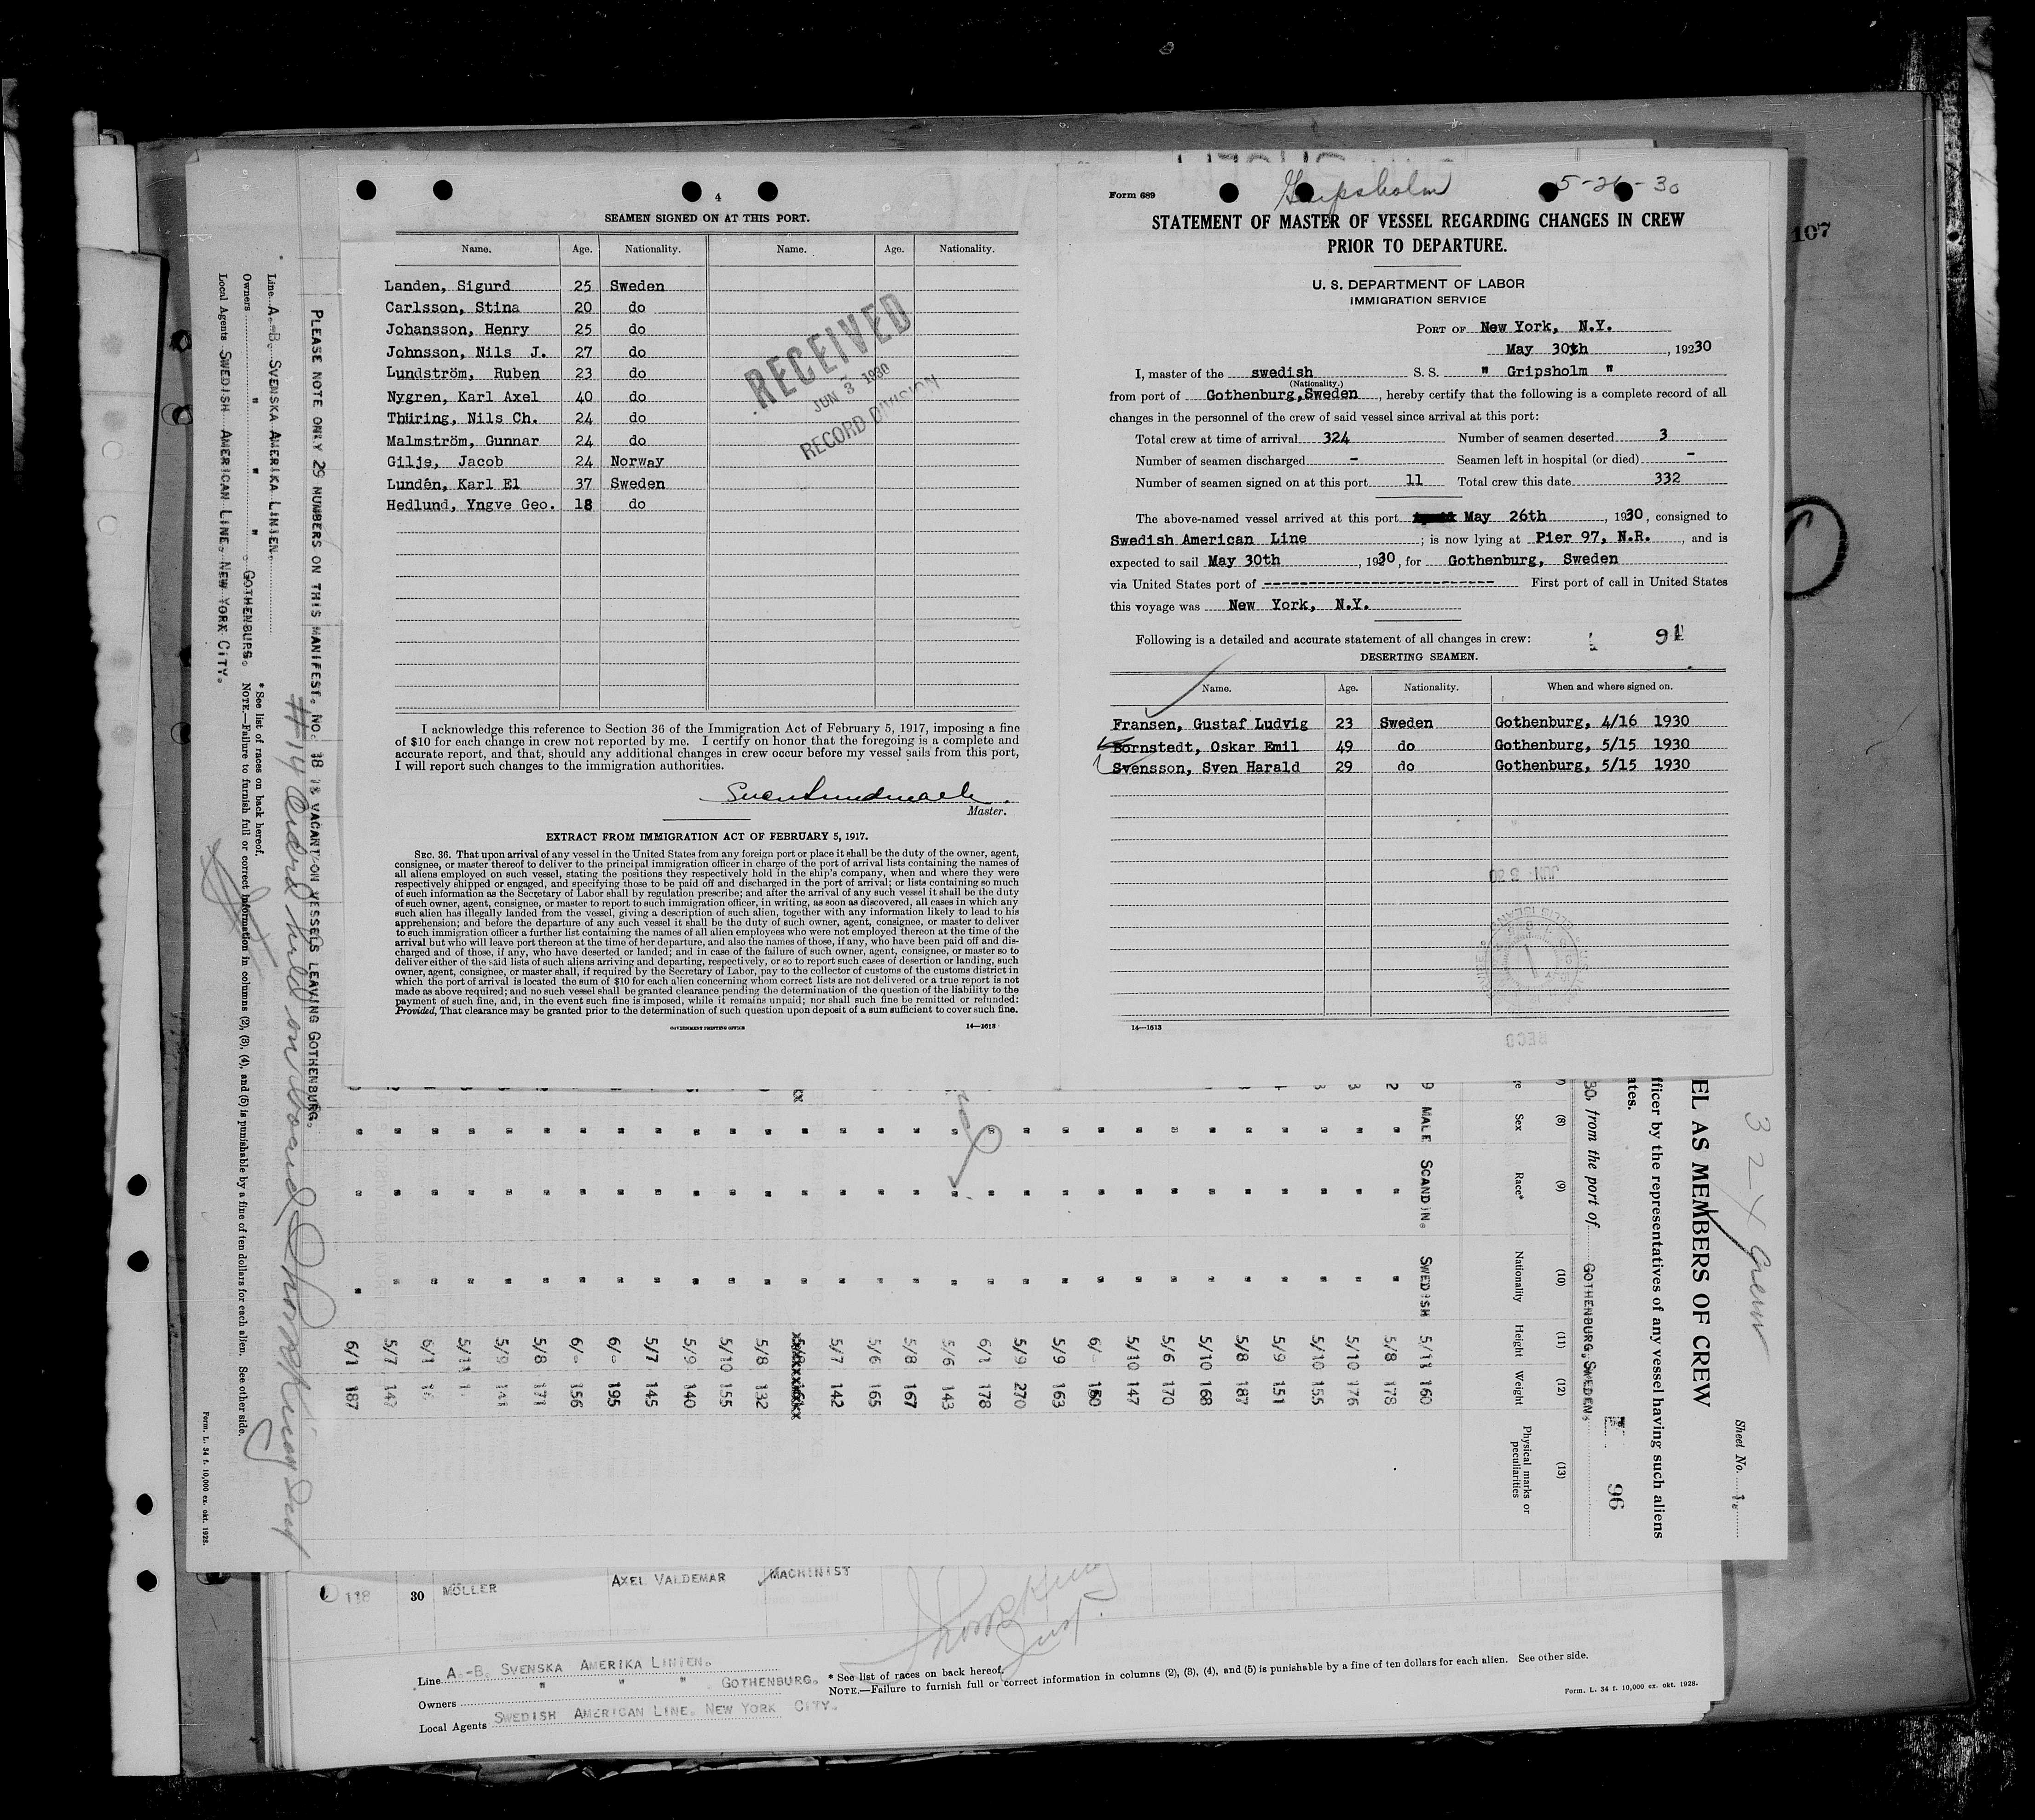 4
SEAMEN SIGNED ON AT THIS PORT.
Name. Age. Nationality. Name. Age. Nationality.
Landen, Sigurd 25 Sweden
Carlsson, Stina 20 do
Johansson, Henry 25 do
Johnsson, Nils J. 27 do
Lundström, Ruben 23 do
Nygren, Karl Axel 40 do
Thüring, Nils Ch. 24 do
Malmström, Gunnar 24 do
Gilje, Jacob 24 Norway
Lundén, Karl El 37 Sweden
Hedlund, Yngve Geo. 18 do
RECEIVED
JUN 3 1930
RECORD DIVISION
I acknowledge this reference to Section 36 of the Immigration Act of February 5, 1917, imposing a fine
of $10 for each change in crew not reported by me. I certify on honor that the foregoing is a complete and
accurate report, and that, should any additional changes in crew occur before my vessel sails from this port,
I will report such changes to the immigration authorities.
Master.
EXTRACT FROM IMMIGRATION ACT OF FEBRUARY 5, 1917.
SEC. 36. That upon arrival of any vessel in the United States from any foreign port or place it shall be the duty of the owner, agent,
consignee, or master thereof to deliver to the principal immigration officer in charge of the port of arrival lists containing the names of
all aliens employed on such vessel, stating the positions they respectively hold in the ship's company, when and where they were
respectively shipped or engaged, and specifying those to be paid off and discharged in the port of arrival; or lists containing so much
of such information as the Secretary of Labor shall by regulation prescribe; and after the arrival of any such vessel it shall be the duty
of such owner, agent, consignee, or master to report to such immigration officer, in writing, as soon as discovered, all cases in which any
such alien has illegally landed from the vessel, giving a description of such alien, together with any information likely to lead to his
apprehension; and before the departure of any such vessel it shall be the duty of such owner, agent, consignee, or master to deliver
to such immigration officer a further list containing the names of all alien employees who were not employed thereon at the time of the
arrival but who will leave port thereon at the time of her departure, and also the names of those, if any, who have been paid off and dis-
charged and of those, if any, who have deserted or landed; and in case of the failure of such owner, agent, consignee, or master so to
deliver either of the said lists of such aliens arriving and departing, respectively, or so to report such cases of desertion or landing, such
owner, agent, consignee, or master shall, if required by the Secretary of Labor, pay to the collector of customs of the customs district in
which the port of arrival is located the sum of $10 for each alien concerning whom correct lists are not delivered or a true report is not
made as above required; and no such vessel shall be granted clearance pending the determination of the question of the liability to the
payment of such fine, and, in the event such fine is imposed, while it remains unpaid; nor shall such fine be remitted or refunded:
Provided, That clearance may be granted prior to the determination of such question upon deposit of a sum sufficient to cover such fine.
GOVERNMENT PRINTING OFFICE 14—1613
Form 689
Gripsholm 5-26-30
STATEMENT OF MASTER OF VESSEL REGARDING CHANGES IN CREW
PRIOR TO DEPARTURE.
U. S. DEPARTMENT OF LABOR
IMMIGRATION SERVICE
PORT OF New York, N.Y.
May 30th, 19230
I, master of the swedish S. S. " Gripsholm "
(Nationality.)
from port of Gothenburg,Sweden, hereby certify that the following is a complete record of all
changes in the personnel of the crew of said vessel since arrival at this port:
Total crew at time of arrival 324 Number of seamen deserted 3
Number of seamen discharged - Seamen left in hospital (or died) -
Number of seamen signed on at this port 11 Total crew this date 332
The above-named vessel arrived at this port May 26th, 1930, consigned to
Swedish American Line; is now lying at Pier 97, N.R., and is
expected to sail May 30th, 1930, for Gothenburg, Sweden
via United States port of -------------------------- First port of call in United States
this voyage was New York, N.Y.
Following is a detailed and accurate statement of all changes in crew: 91
DESERTING SEAMEN.
Name. Age. Nationality. When and where signed on.
Fransen, Gustaf Ludvig 23 Sweden Gothenburg, 4/16 1930
Bornstedt, Oskar Emil 49 do Gothenburg, 5/15 1930
Svensson, Sven Harald 29 do Gothenburg, 5/15 1930
14—1613
107
Line A.-B. SVENSKA AMERIKA LINIEN.
Owners " " " GOTHENBURG.
Local Agents SWEDISH AMERICAN LINE, NEW YORK CITY.
PLEASE NOTE ONLY 29 NUMBERS ON THIS MANIFEST. NO. 18 IS VACANT ON VESSELS LEAVING GOTHENBURG.
* See list of races on back hereof.
NOTE.—Failure to furnish full or correct information in columns (2), (3), (4), and (5) is punishable by a fine of ten dollars for each alien. See other side.
Form. L. 34 f. 10,000 ex. okt. 1928.
324 Crew
Sheet No. 1.
EL AS MEMBERS OF CREW
fficer by the representatives of any vessel having such aliens
ates.
30, from the port of GOTHENBURG, SWEDEN. 96
(8) (9) (10) (11) (12) (13)
Sex Race* Nationality Height Weight Physical marks or peculiarities
MALE SCANDIN. SWEDISH 5/11 160
" " " 5/8 178
" " " 5/10 176
" " " 5/10 155
" " " 5/9 151
" " " 5/8 187
" " " 5/10 168
" " " 5/6 170
" " " 5/10 147
" " " 6/- 150
" " " 5/9 163
" " " 5/9 270
" " " 6/1 178
" " " 5/6 143
" " " 5/8 167
" " " 5/6 165
" " " 5/7 142
" " " 5/8 132
" " " 5/10 155
" " " 5/9 140
" " " 5/7 145
" " " 6/- 195
" " " 6/- 156
" " " 5/8 171
" " " 5/9 141
" " " 5/11
" " " 6/1
" " " 5/7 147
" " " 6/1 187
118 30 MÖLLER AXEL VALDEMAR MACHINIST
Line A.-B. SVENSKA AMERIKA LINIEN.
Owners " " " GOTHENBURG.
Local Agents SWEDISH AMERICAN LINE. NEW YORK CITY.
* See list of races on back hereof.
NOTE.—Failure to furnish full or correct information in columns (2), (3), (4), and (5) is punishable by a fine of ten dollars for each alien. See other side.
Form. L. 34 f. 10,000 ex. okt. 1928.